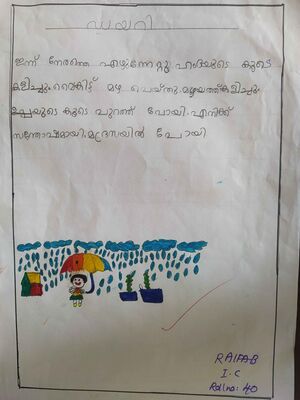 ഡയറി
ഇന്ന് നേരത്തെ എഴുന്നേറ്റു ഹംദയുടെ കൂടെ
കളിച്ചു. വൈകിട്ട് മഴ പെയ്തു. മഴയത്ത് കളിച്ചു.
ഉപ്പയുടെ കൂടെ പുറത്ത് പോയി. എനിക്ക്
സന്തോഷമായി. മദ്രസയിൽ പോയി
RAIFA·B
I. C
Roll no: 40